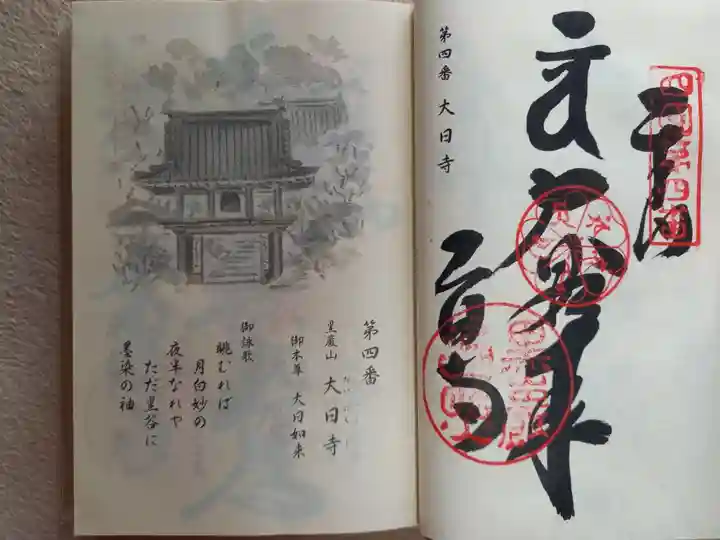 奉納
四国第四番
大日如来
第四番 大日寺
第四番
黒巌山 大日寺
御本尊 大日如来
御詠歌
眺むれば
月白妙の
夜半なれや
ただ黒谷に
墨染の袖